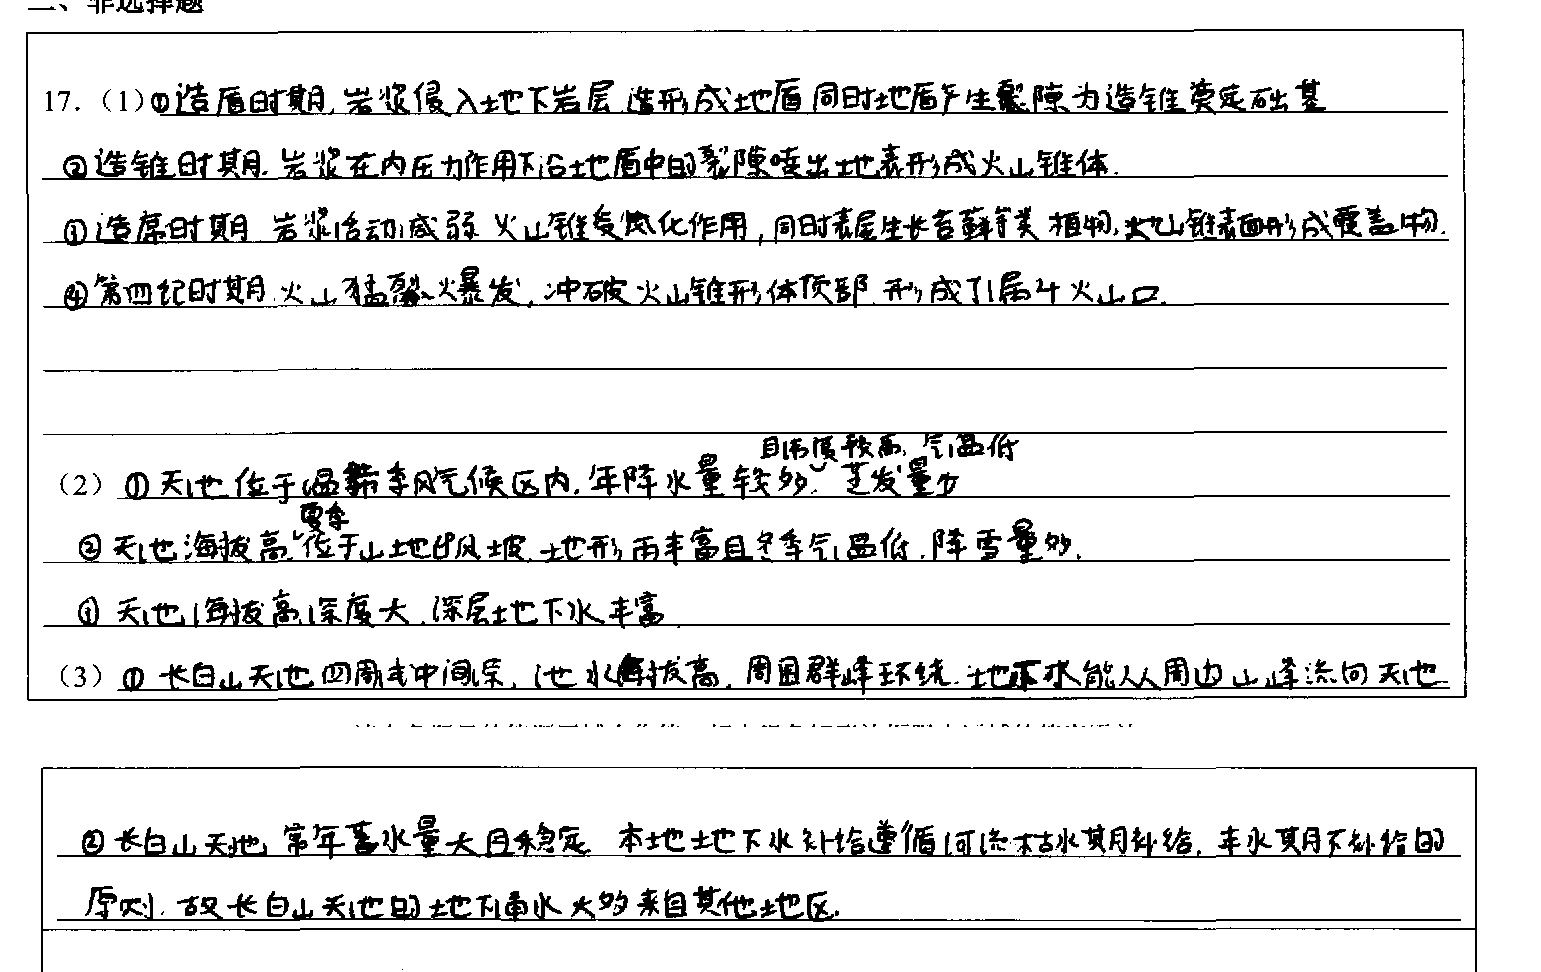 二、非选择题
17.（1）①造盾时期,岩浆侵入地下岩层 造形成地盾 同时地盾产生裂隙为造锥奠定础基
②造锥时期.岩浆在内压力作用下沿地盾中的裂隙喷出地表形成火山锥体.
①造席时期 岩浆活动减弱 火山锥受风化作用,同时表层生长苔藓等类植物,火山锥表面形成覆盖物.
④第四纪时期,火山猛裂火爆发,冲破火山锥形体顶部 形成了 火山口.
且纬度较高,气温低
（2）①天池位于温带季风气候区内.年降水量较多.蒸发量少
夏季
②天池海拔高,位于山地迎风坡 地形雨丰富且冬季气温低,降雪量多.
① 天池海拔高,深度大.深层地下水丰富
（3）① 长白山天池四周 中间 ,池水海拔高.周围群峰环绕.地下水能从周边山峰流向天池
②长白山天池,常年蓄水量大且稳定 本地地下水补给遵循河流枯水期补给.丰水期不补给的
原则.故长白山天池的地下水大多来自其他地区.